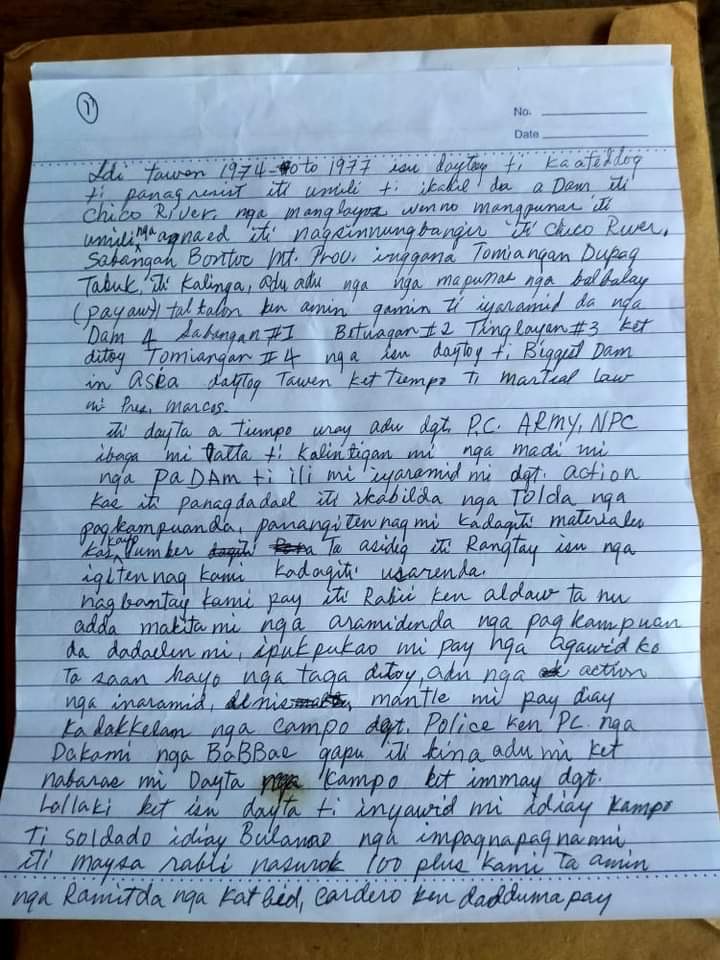 1
No.
Date
Idi tawen 1974 to 1977 isu daytoy ti kaateddog
ti panagresist iti umili ti ikabil da a Dam iti
Chico River. nga manglayos wenno mangpunas iti
umili nga agnaed iti nagsinnungbangir iti Chico River.
Sabangan Bontoc Mt. Prov. inggana Tomiangan Dupag
Tabuk, iti Kalinga, adu adu nga nga mapunas nga balbalay
(payaw) taltalon ken amin gamin ti iyaramid da nga
Dam 4 Sabangan #1 Betuagan #2 Tinglayan #3 ket
ditoy Tomiangan #4 nga isu daytoy ti Biggest Dam
in Asia daytoy Tawen ket tiempo ti martial law
ni Pres. Marcos.
iti dayta a tiempo uray adu dgt. P.C. ARMY, NPC
ibaga mi latta ti kalintigan mi nga madi mi
nga paDAm ti ili mi iyaramid mi dgt. action
kas iti panagdadael iti ikabilda nga Tolda nga
pagkampuanda, panangiten nag mi kadagiti materiales
kas kayo lumber ta asidig iti Rangtay isu nga
igiten nag kami kadagiti usarenda.
nagbantay kami pay iti Rabii ken aldaw ta nu
adda makita mi nga aramidenda nga pagkampuan
da dadaelen mi, ipukpukao mi pay nga agawid ko
ta saan kayo nga taga ditoy, adu nga action
nga inaramid, mantle mi pay diay
kadakkelan nga campo dgt. Police ken PC. nga
Dakami nga BaBBae gapu iti kina adu mi ket
nabarae mi Dayta kampo ket immay dgt.
Lollaki ket isu dayta ti inyawid mi idiay kampo
ti soldado idiay Bulanao nga impagnapagna mi
iti maysa rabii nasurok 100 plus kami ta amin
nga Ramitda nga katbed, cardero ken dadduma pay